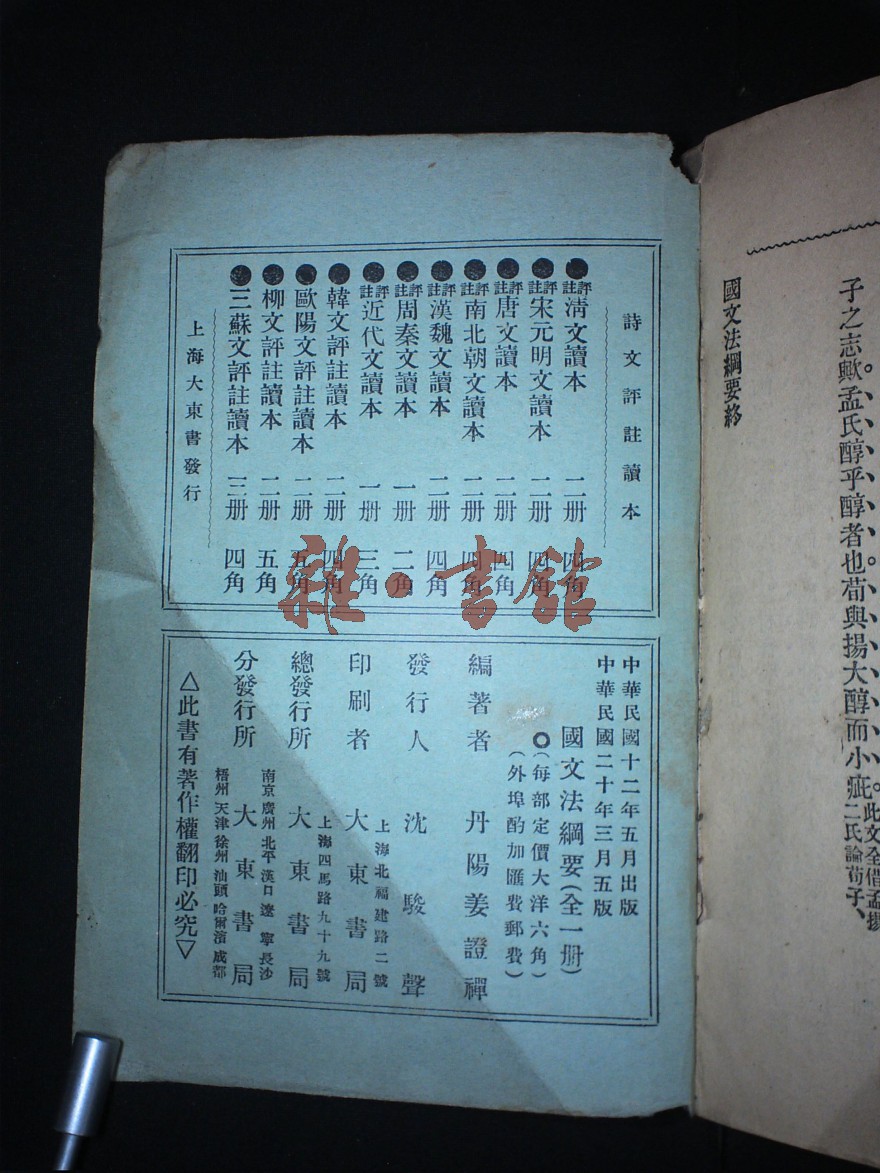 子之志歟孟氏醇乎醇者也荀與揚大醇而小疵。此文全借孟揚
二氏論荀子、
國文法綱要終
詩文評註讀本
●評註清文讀本 二册 四角
●評註宋元明文讀本 二册 四角
●評註唐文讀本 二册 四角
●評註南北朝文讀本 二册 四角
●評註漢魏文讀本 二册 四角
●評註周秦文讀本 一册 二角
●評註近代文讀本 一册 三角
●韓文評註讀本 二册 四角
●歐陽文評註讀本 二册 五角
●柳文評註讀本 二册 五角
●三蘇文評註讀本 三册 四角
上海大東書發行
中華民國十二年五月出版
中華民國二十年三月五版
國文法綱要(全一册)
(每部定價大洋六角)
(外埠酌加匯費郵費)
編著者 丹陽姜證禪
發行人 沈駿聲
上海北福建路二號
印刷者 大東書局
上海四馬路九十九號
總發行所 大東書局
南京廣州北平漢口遼寧長沙
分發行所 大東書局
梧州天津徐州汕頭哈爾濱成都
△此書有著作權翻印必究▽
雜·書館